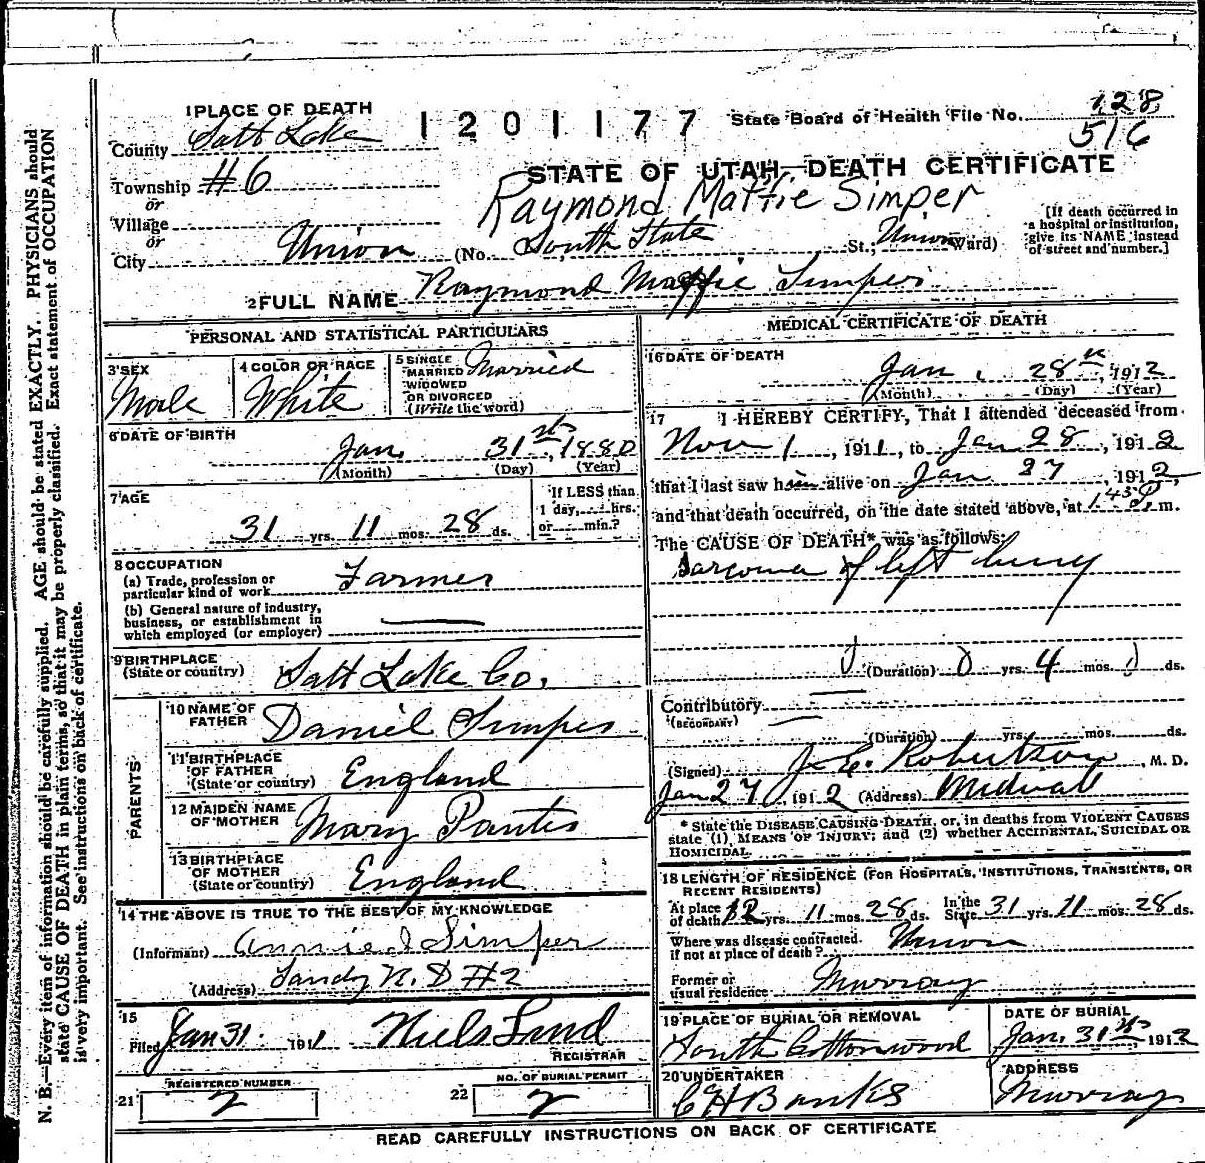 N. B.—Every item of information should be carefully supplied. AGE should be stated EXACTLY. PHYSICIANS should
state CAUSE OF DEATH in plain terms, so that it may be properly classified. Exact statement of OCCUPATION
is very important. See instructions on back of certificate.
1 PLACE OF DEATH
1201177
State Board of Health File No. 128
516
County Salt Lake
STATE OF UTAH—DEATH CERTIFICATE
Township #6
or
Raymond Maffie Simper
Village
or
City Union (No. South State St.; Union Ward)
[If death occurred in
a hospital or institution,
give its NAME instead
of street and number.]
2 FULL NAME Raymond Maffie Simper
PERSONAL AND STATISTICAL PARTICULARS
3 SEX
Male
4 COLOR OR RACE
White
5 SINGLE
MARRIED
WIDOWED
OR DIVORCED
(Write the word)
Married
6 DATE OF BIRTH
Jan. 31st, 1880
(Month) (Day) (Year)
7 AGE
31 yrs. 11 mos. 28 ds.
If LESS than
1 day, hrs.
or min.?
8 OCCUPATION
(a) Trade, profession or
particular kind of work Farmer
(b) General nature of industry,
business, or establishment in
which employed (or employer)
9 BIRTHPLACE
(State or country) Salt Lake Co.
PARENTS
10 NAME OF
FATHER Daniel Simper
11 BIRTHPLACE
OF FATHER
(State or country) England
12 MAIDEN NAME
OF MOTHER Mary
13 BIRTHPLACE
OF MOTHER
(State or country) England
14 THE ABOVE IS TRUE TO THE BEST OF MY KNOWLEDGE
(Informant) Annie J Simper
(Address) Sandy R. D #2
15
Filed Jan 31. 191 Niels Lind
REGISTRAR
21 REGISTERED NUMBER
2
22 NO. OF BURIAL PERMIT
2
MEDICAL CERTIFICATE OF DEATH
16 DATE OF DEATH
Jan. 28th, 1912
(Month) (Day) (Year)
17 I HEREBY CERTIFY, That I attended deceased from
Nov 1, 1911, to Jan 28, 1912
that I last saw him alive on Jan 27, 1912,
and that death occurred, on the date stated above, at 1 45 P. m.
The CAUSE OF DEATH* was as follows:
Sarcoma of left lung
(Duration) 0 yrs. 4 mos. ds.
Contributory
(SECONDARY)
(Duration) yrs. mos. ds.
(Signed) J. E. Robertson, M. D.
Jan 27, 1912 (Address) Midvale
* State the DISEASE CAUSING DEATH, or, in deaths from VIOLENT CAUSES
state (1) MEANS OF INJURY; and (2) whether ACCIDENTAL, SUICIDAL OR
HOMICIDAL.
18 LENGTH OF RESIDENCE (FOR HOSPITALS, INSTITUTIONS, TRANSIENTS, OR
RECENT RESIDENTS)
At place
of death 12 yrs. 11 mos. 28 ds.
In the
State 31 yrs. 11 mos. 28 ds.
Where was disease contracted.
if not at place of death? Union
Former or
usual residence Murray
19 PLACE OF BURIAL OR REMOVAL
South Cottonwood
DATE OF BURIAL
Jan. 31st 1912
20 UNDERTAKER
C H Banks
ADDRESS
Murray
READ CAREFULLY INSTRUCTIONS ON BACK OF CERTIFICATE